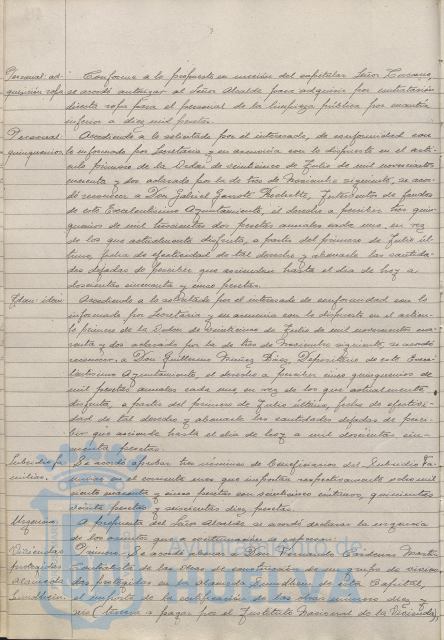 Personal: ad-
quisición ropa
Conforme a la propuesta en moción del capitular Señor
se acordó autorizar al Señor Alcalde para adquirir por contratación
directa ropa para el personal de la limpieza pública por cuantía
inferior a diez mil pesetas.
Personal:
quinquenios.
Accediendo a lo solicitado por el interesado, de conformidad con
lo informado por Secretaría y en armonía con lo dispuesto en el artí-
culo primero de la Orden de veinticinco de Julio de mil novecientos
cuarenta y dos aclarada por la de tres de Noviembre siguiente, se acor-
dó reconocer a Don Gabriel Interventor de fondos
de este Excelentísimo Ayuntamiento, el derecho a percibir tres quin-
quenios de mil trescientas dos pesetas anuales cada uno, en vez
de los que actualmente disfruta, a partir del primero de Julio úl-
timo, fecha de efectividad de tal derecho y abonarle las cantida-
des dejadas de percibir que ascienden hasta el día de hoy a
doscientas cincuenta y cinco pesetas.
Idem: idem
Accediendo a lo solicitado por el interesado de conformidad con lo
informado por Secretaría y en armonía con lo dispuesto en el artícu-
lo primero de la Orden de veinticinco de Julio de mil novecientos cua-
renta y dos aclarada por la de tres de Noviembre siguiente, se acordó
reconocer a Don Guillermo Muñoz Báez, Depositario de este Exce-
lentísimo Ayuntamiento, el derecho a percibir cinco quinquenios de
mil pesetas anuales cada uno, en vez de los que actualmente
disfruta, a partir del primero de Julio último, fecha de efectivi-
dad de tal derecho y abonarle las cantidades dejadas de perci-
bir que asciende hasta el día de hoy a mil doscientas cin-
cuenta pesetas.
Subsidio fa-
miliar.
Se acordó aprobar tres nóminas de Beneficiarios del Subsidio Fa-
miliar en el corriente mes que importan respectivamente ocho mil
ciento cuarenta y cinco pesetas con céntimos, quinientas
veinte pesetas y seiscientas diez pesetas.
Urgencia
A propuesta del Señor Alcalde se acordó declarar la urgencia
de los asuntos que a continuación se expresan:
Viviendas
protegidas
Alameda
Sundheim
Primero: Se acordó abonar a D. Fernando Cárdenas Martín
contratista de las obras de construcción de un grupo de vivien-
das protegidas en la Alameda Sundheim de esta Capital,
el importe de la certificación de las obras número diez y
seis (tercera a pagar por el Instituto Nacional de la Vivienda),
Ayuntamiento de
HUELVA